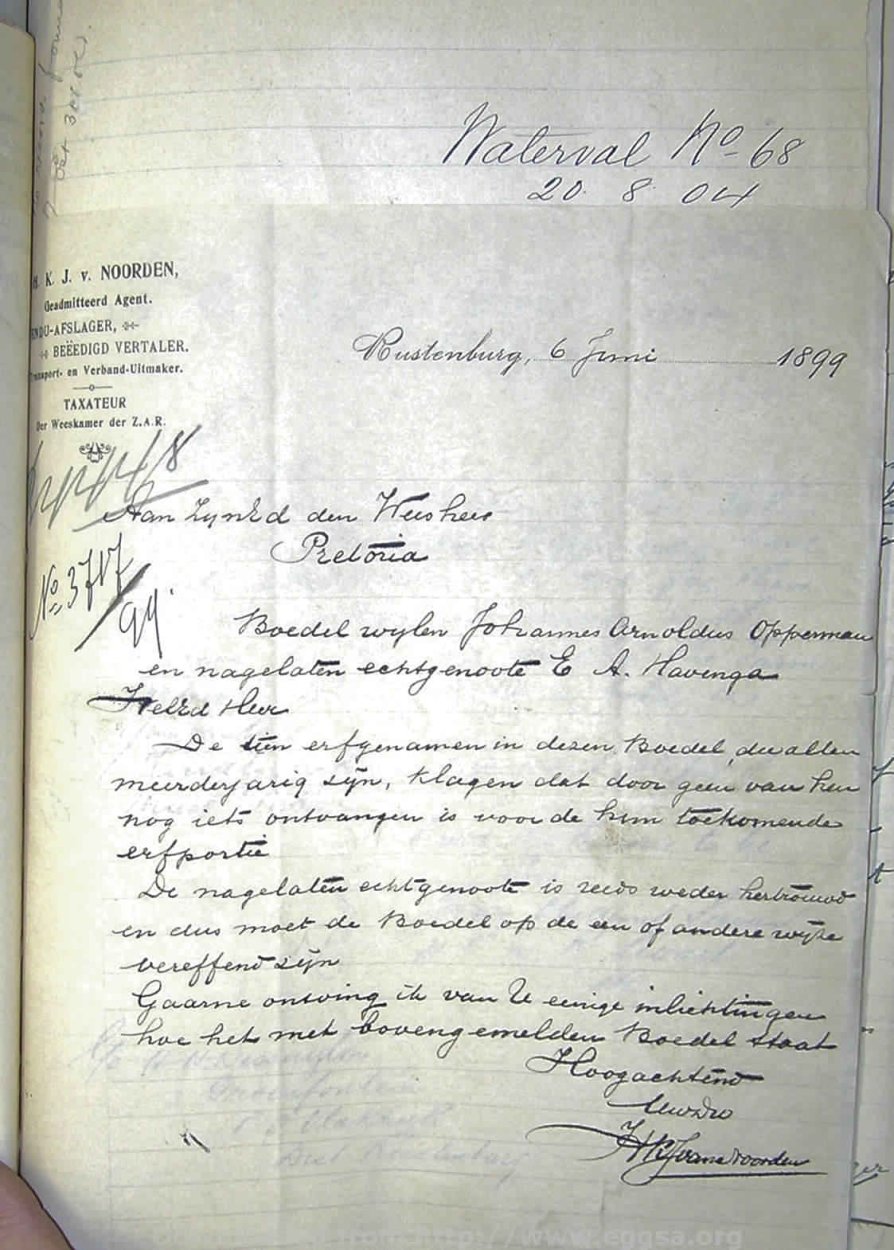 Waterval No 68
20. 8. 04
K. J. v. NOORDEN,
Geadmitteerd Agent.
NDU-AFSLAGER,
BEËEDIGD VERTALER.
Transport- en Verband-Uitmaker.
TAXATEUR
der Weeskamer der Z.A.R.
Rustenburg, 6 Juni 1899
Aan ZynEd den Weesheer
Pretoria
No 3717/99.
Boedel wylen Johannes Arnoldus Opperman
en nagelaten echtgenoote E A. Havenga
WelEd Heer
De tien erfgenamen in dezen Boedel, die allen
meerderjarig zÿn, klagen dat door geen van hen
nog iets ontvangen is voor de hun toekomende
erfportie
De nagelaten echtgenoote is reeds weder hertrouwd
en dus moet de Boedel op de een of andere wÿze
vereffend zÿn
Gaarne ontving ik van U eenige inlichtingen
hoe het met bovengemelden Boedel staat
Hoogachtend
UwdDw
HKJvanNoorden
http://www.eggsa.org